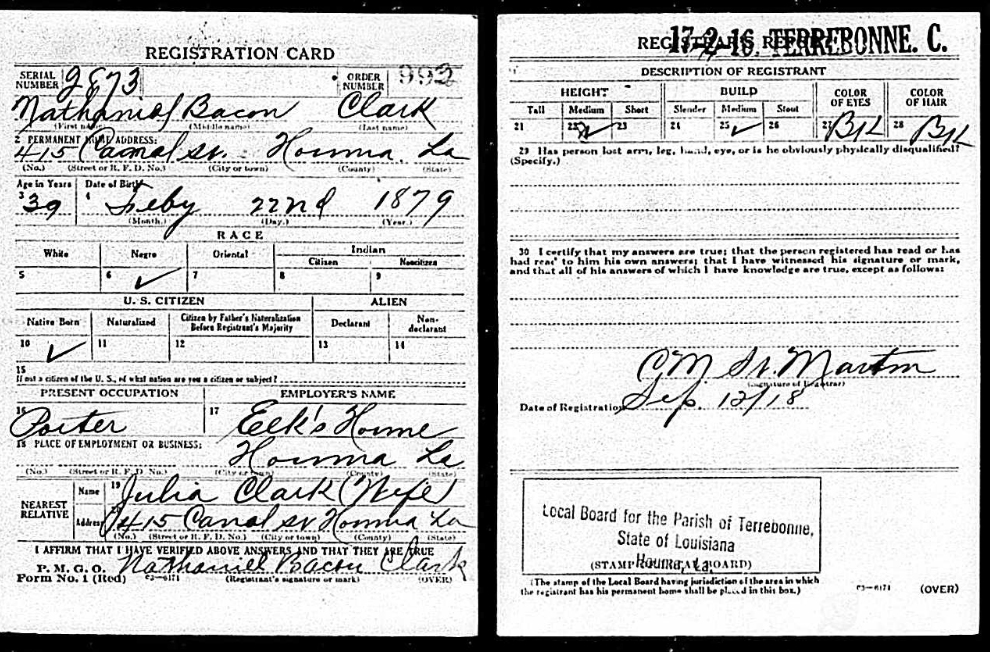 REGISTRATION CARD
SERIAL NUMBER 2873 ORDER NUMBER 992
Nathaniel Bacon Clark
(First name) (Middle name) (Last name)
2 PERMANENT HOME ADDRESS:
415 Canal st. Houma, La
(No.) (Street or R. F. D. No.) (City or town) (County) (State)
Age in Years Date of Birth
3 39 4 Feby 22nd 1879
(Month.) (Day.) (Year.)
RACE
White Negro Oriental Indian
Citizen Noncitizen
5 6 ✓ 7 8 9
U. S. CITIZEN ALIEN
Native Born Naturalized Citizen by Father's Naturalization Before Registrant's Majority Declarant Non-declarant
10 ✓ 11 12 13 14
15
If not a citizen of the U. S., of what nation are you a citizen or subject?
PRESENT OCCUPATION EMPLOYER'S NAME
16 Porter 17 Elk's Home
18 PLACE OF EMPLOYMENT OR BUSINESS:
Houma La
(No.) (Street or R. F. D. No.) (City or town) (County) (State)
NEAREST RELATIVE Name 19 Julia Clark (Wife)
Address 415 Canal st. Houma La
(No.) (Street or R. F. D. No.) (City or town) (County) (State)
I AFFIRM THAT I HAVE VERIFIED ABOVE ANSWERS AND THAT THEY ARE TRUE
P. M. G. O.
Form No. 1 (Red) c3—6171 Nathaniel Bacon Clark
(Registrant's signature or mark) (OVER)
REGISTRAR'S REPORT
17-2-16. TERREBONNE. C.
DESCRIPTION OF REGISTRANT
HEIGHT BUILD COLOR OF EYES COLOR OF HAIR
Tall Medium Short Slender Medium Stout
21 22 ✓ 23 24 25 ✓ 26 27 Blk 28 Blk
29 Has person lost arm, leg, hand, eye, or is he obviously physically disqualified?
(Specify.)
30 I certify that my answers are true; that the person registered has read or has
had read to him his own answers; that I have witnessed his signature or mark,
and that all of his answers of which I have knowledge are true, except as follows:
C M St. Martin
(Signature of Registrar)
Date of Registration Sep. 12/18
Local Board for the Parish of Terrebonne,
State of Louisiana
Houma, La.
(STAMP OF LOCAL BOARD)
(The stamp of the Local Board having jurisdiction of the area in which
the registrant has his permanent home shall be placed in this box.)
c3—6171 (OVER)